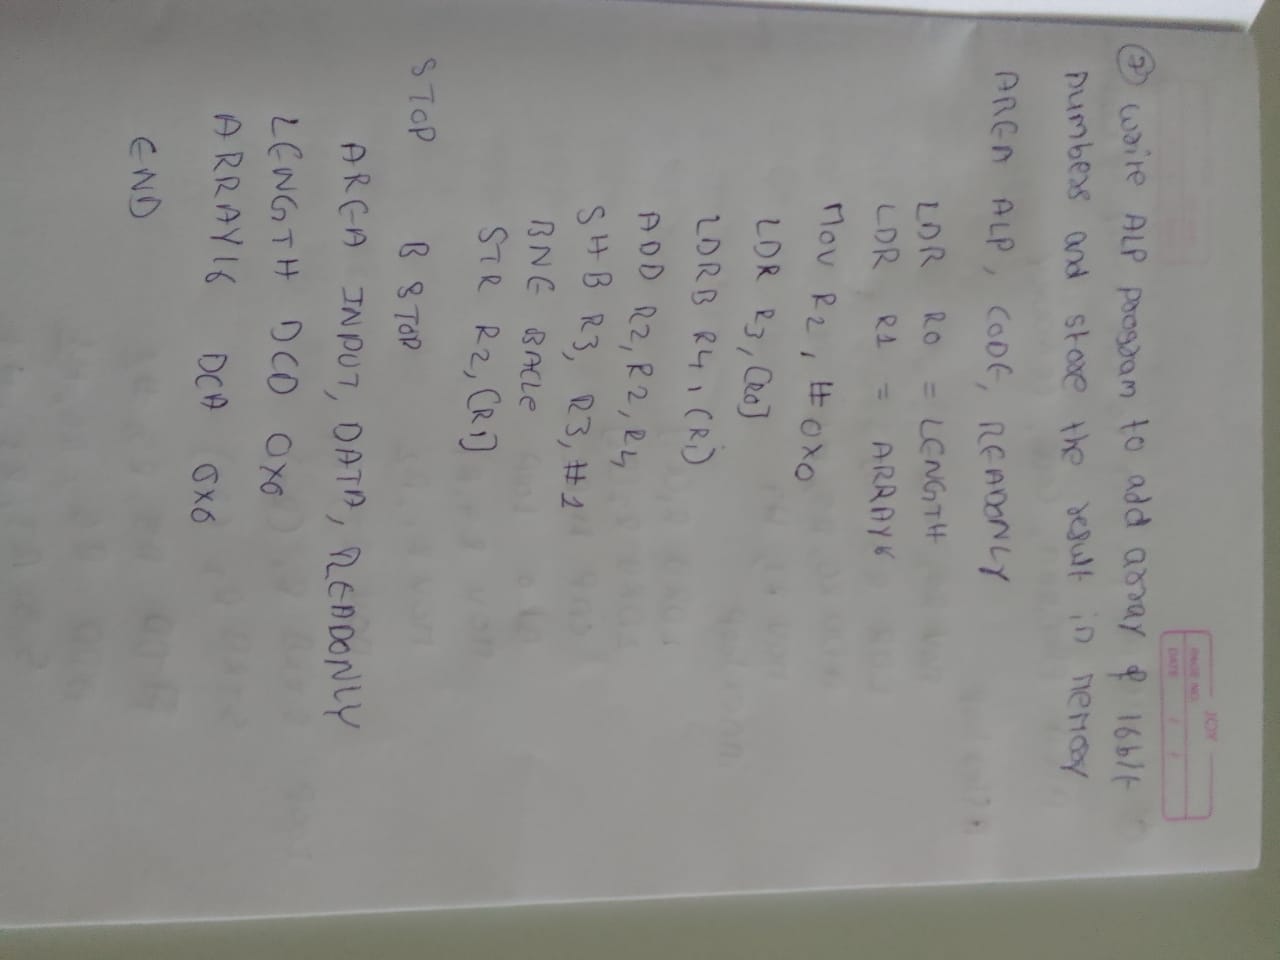 JOY
PAGE NO.
DATE / /
7 Wrire ALP program to add array of 16bit
numbers and store the result in memory
AREA ALP, CODE, READONLY
LDR R0 = LENGTH
LDR R1 = ARRAY6
MOV R2, #0X0
LDR R3, [R0]
LDRB R4, (Ri)
ADD R2, R2, R4
SHB R3, R3, #1
BNE BACLE
STR R2, [R1]
STOP B STOP
AREA INPUT, DATA, READONLY
LENGTH DCD 0X6
ARRAY16 DCA 0X6
END